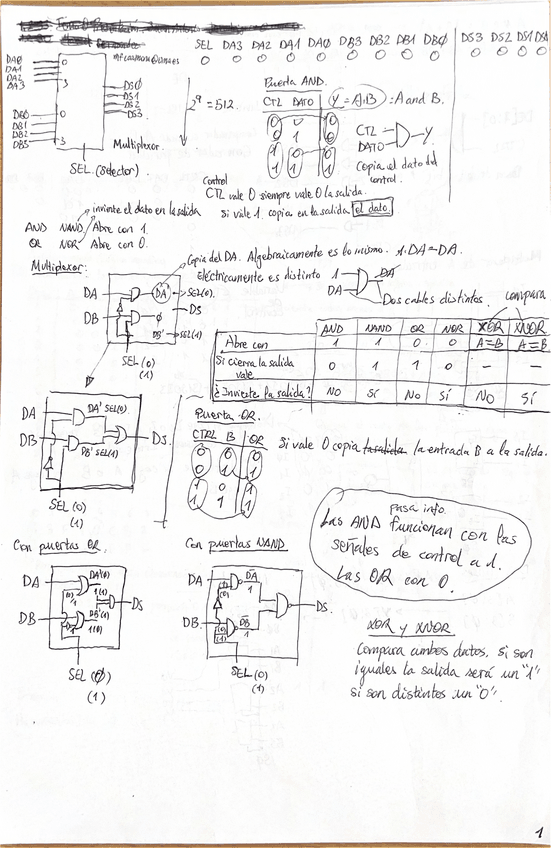 SEL DA3 DA2 DA1 DA0 DB3 DB2 DB1 DB0 DS3 DS2 DS1 DS0
DA0
DA1
DA2
DA3
0
3
DS0
DS1
DS2
DS3
DB0
DB1
DB2
DB3
0
3
Multiplexor
SEL (Selector)
2^9 = 512.
Puerta AND.
CTL DATO Y=A·B = A and B.
0 0 0
0 1 0
1 0 0
1 1 1
CTL
DATO
Y
Copia el dato del
control.
Control
CTL vale 0 siempre vale 0 la salida.
Si vale 1. copia en la salida el dato.
invierte el dato en la salida
AND NAND Abre con 1.
OR NOR Abre con 0.
Multiplexor:
Copia del DA. Algebraicamente es lo mismo. 1·DA=DA.
Eléctricamente es distinto 1
DA
DA
Dos cables distintos.
DA
DB
DA
0
SEL(0).
DS
DB' SEL(1)
SEL (0)
(1)
compara
AND NAND OR NOR XOR XNOR
Abre con 1 1 0 0 A=B A=B
Si cierra la salida
vale 0 1 1 0 — —
¿Invierte la salida? No Sí No Sí No Sí
DA
DB
DA' SEL(0)
DB' SEL(1)
DS.
SEL (0)
(1)
Puerta OR.
CTRL B OR
0 0 0
0 1 1
1 0 1
1 1 1
Si vale 0 copia la entrada B a la salida.
pasa info
Las AND funcionan con las
señales de control a 1.
Las OR con 0.
Con puertas OR.
DA
DB
DS
SEL (0)
(1)
Con puertas NAND
DA
DB
DS.
SEL (0)
(1)
XOR y XNOR
Compara ambos datos, si son
iguales la salida será un "1"
si son distintos un "0".
1